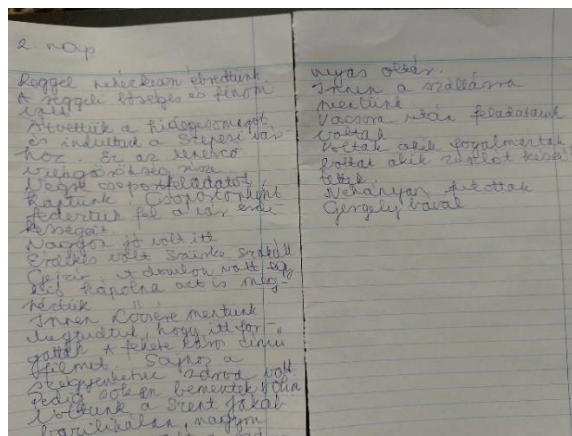 2. nap
Reggel nehézkesen ébredtünk.
A reggeli bőséges és finom
volt.
Átvettük a hidegcsomagot
és indultunk a Szepesi vár-
hoz. Ez az UNESCO
világörökség része
Végre csoportfeladatot
kaptunk. Csoportonként
fedeztük fel a vár érde-
kességeit.
Nagyon jó volt itt
Érdekes volt
volt egy
kis kápolna azt is meg-
néztük
Innen Lőcsére mentünk
Megtudtuk, hogy itt for-
gatták A fekete város című
filmet. Sajnos a
szégyenketrec zárva volt
Pedig sokan bementek volna
Voltunk a Szent Jakab
bazilikában, nagyon
nyas oltár.
Innen a szállásra
mentünk
Vacsora után feladataink
voltak
Voltak akik fogalmaztak
voltak akik zászlót készí-
tettek
Néhányan futottak
Gergely bával